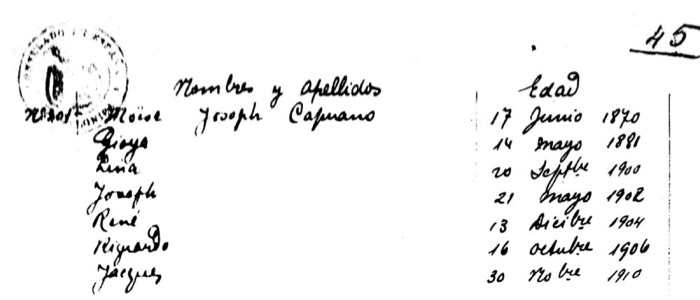 45
Nombres y apellidos Edad
Nº 201 Moïse Joseph Capuano 17 Junio 1870
Gioya 14 mayo 1881
Lina 20 Septbre 1900
Joseph 21 mayo 1902
René 13 Dicibre 1904
Riguardo 16 octubre 1906
Jacques 30 Nobre 1910